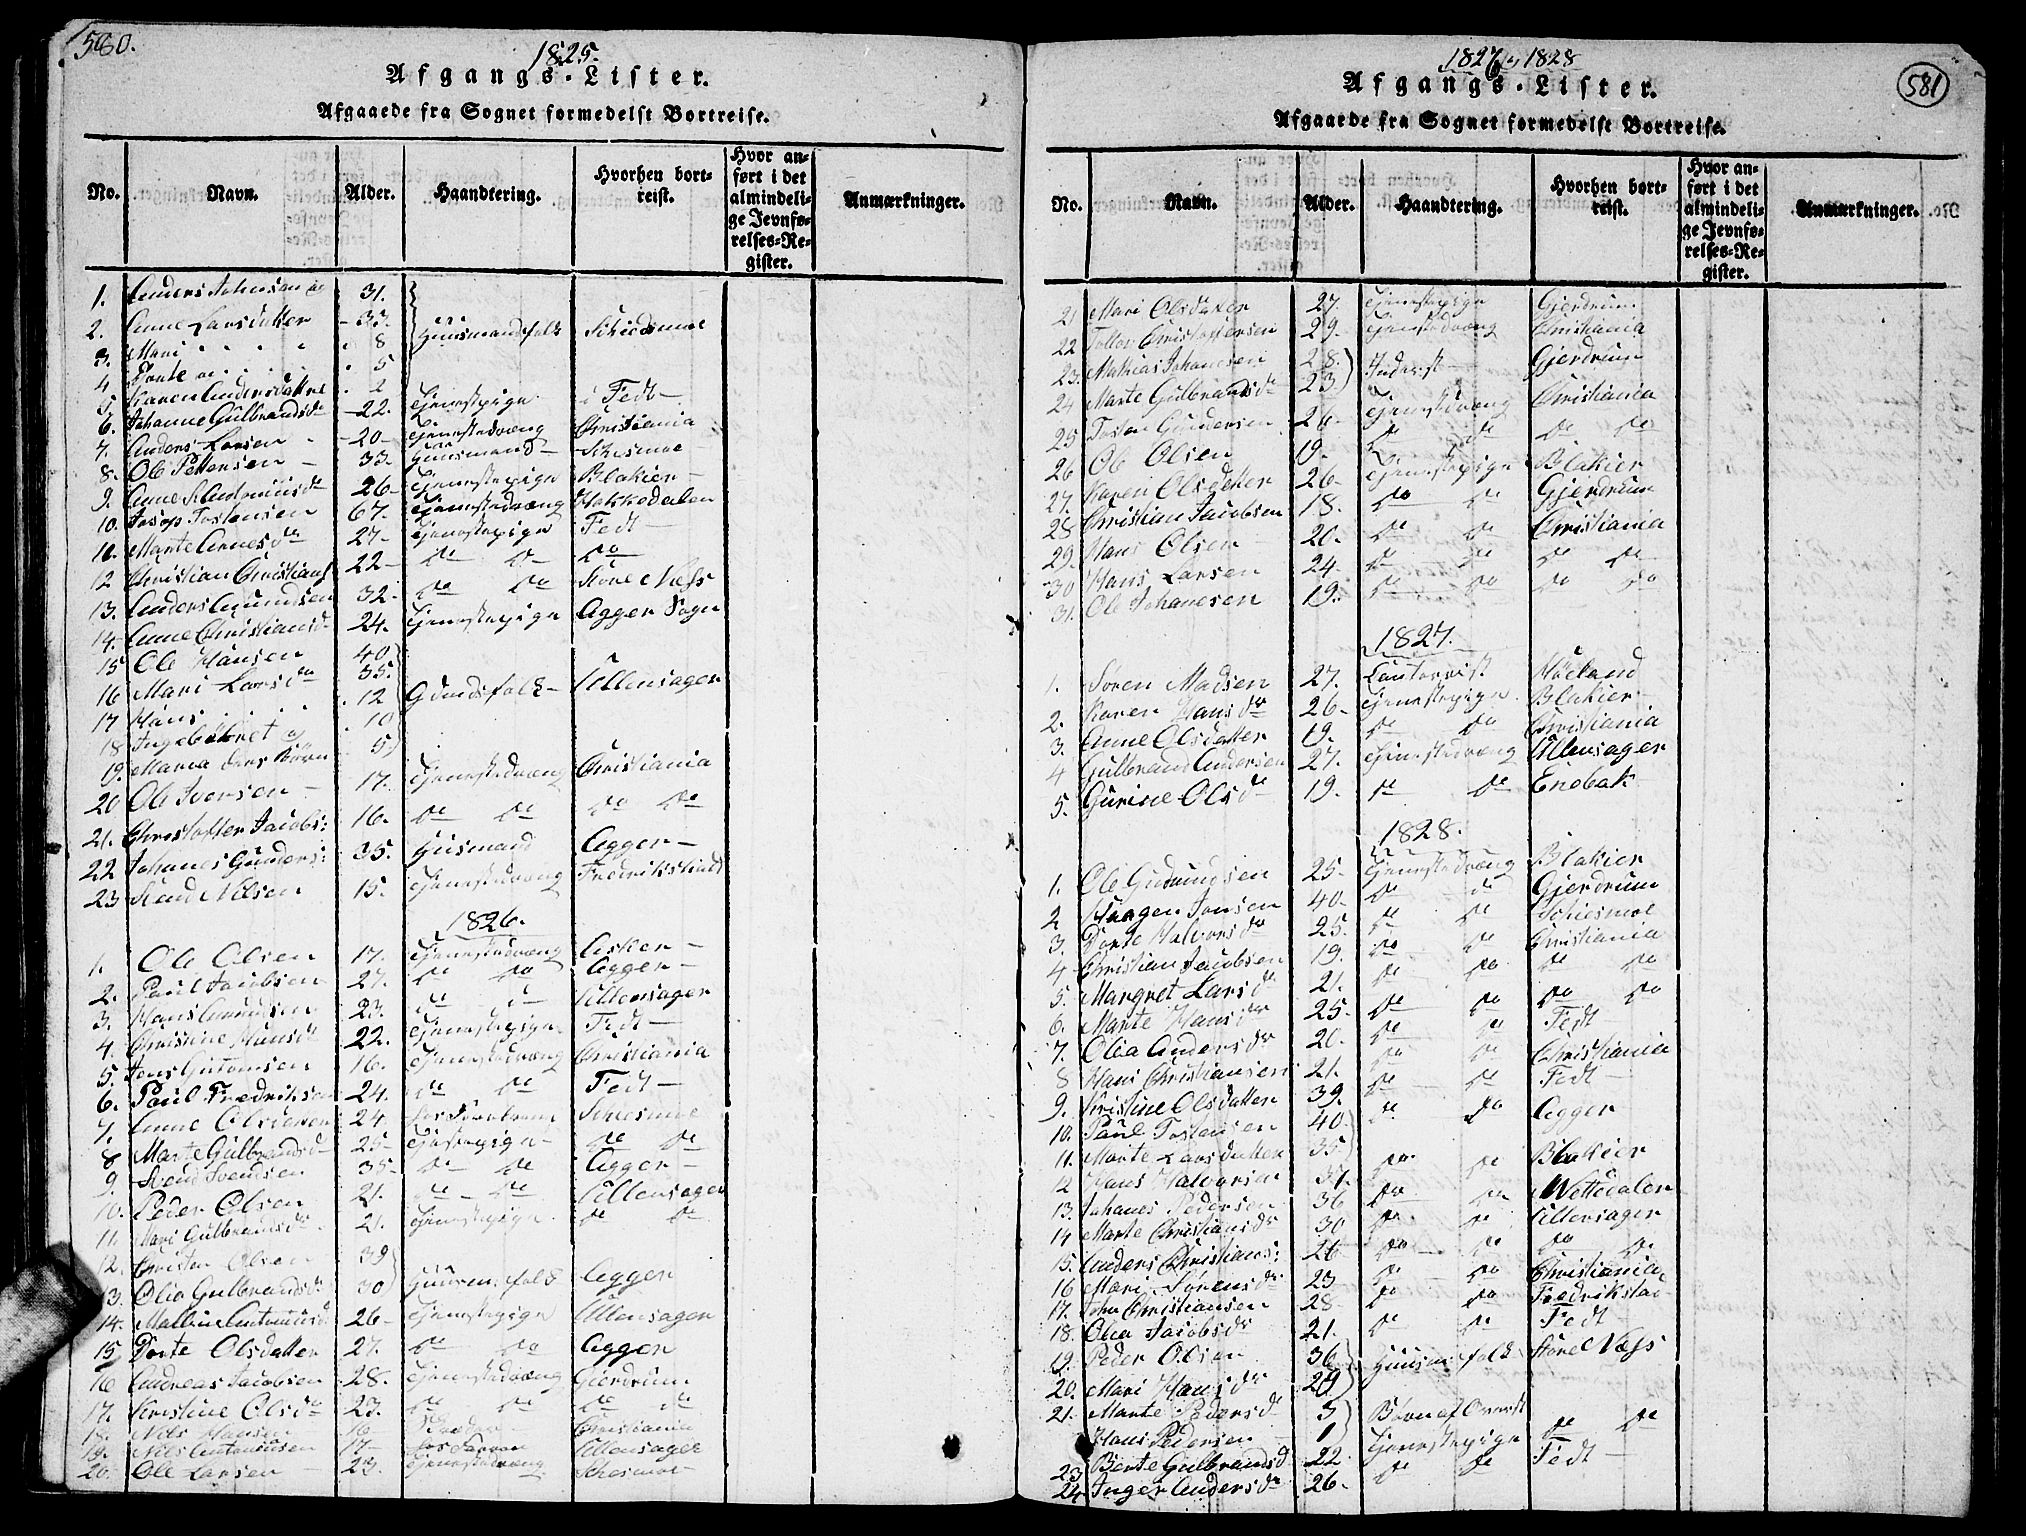 580.
1825.
Afgangs-Lister.
Afgaaede fra Sognet formedelst Bortreise.
No. Navn. Alder. Haandtering. Hvorhen bortreist. Hvor anført i det almindelige Jevnførelses-Register. Anmærkninger.
1. Anders Johnsen 31.
2. Anne Larsdatter 33. Huusmandsfolk Schiedsmoe
3. Mari 8
4. Dorte 5
5. Karen Andersdatter 2
6. Johanne Gulbrandsdr 22. Tjenestepige Fedt
7. Anders Larsen 20 Tjenestedræng Christiania
8. Ole Pettersen 33. Huusmand Schesmoe
9. Anne Antoniusdr 26 Tjenestepige Blakier
10. Josop Tostensen 67. Tjenestedræng Hakkedalen
11. Marte Arnesdr 27 Tjenestepige Fedt
12 Christian Christians 22 do do do
13. Anders Amundsen 32. do do Store Næss
14. Anne Christiansdr 24. Tjenestepige Agger Sogn
15 Ole Hansen 40
16 Mari Larsdr 35. Gaardsfolk Ullensager
17 Hans 12
18 Ingebohret og 10
19. Maria deres Børn 5
20 Ole Iversen 17. Tjenestedræng Christiania
21. Christoffer Jacobs: 16. do do do do
22 Johanes Gunders: 35. Huusmand Agger
23 Knud Nilsen 15. Tjenestedræng Fredrikshald
1826.
1. Ole Olsen 17. Tjenestedræng Asker
2. Paul Jacobsen 27. do do Agger
3. Hans Amundsen 23. do do Ullensager
4. Christine Hansdr 22. Tjenestepige Fedt
5. Jens Guttormsen 16. Tjenestedræng Christiania
6. Paul Fredriksen 24. do do Fedt
7. Anne Olsdatter 24 Schesmoe
8 Marte Gulbrandsdr 25 Tjenestepige do do
9 Knud Svendsen 35 do do Agger
10. Peder Olsen 21. do do Ullensager
11. Mari Gulbrandsdr 21. Tjenestepige do do
12. Christen Olsen 39
13. Olia Gulbrandsdr 30 Huusmfolk Agger
14. Malline Antoniusdr 26 Tjenestepige Ullensager
15 Dorte Olsdatter 27. do do Agger
16 Andreas Jacobsen 28. Tjenestedræng Gierdrum
17. Kristine Olsdr 23. do do do do
18. Nils Hansen 16 Christiania
19. Nils Antoniusen 17 Ullensager
20. Ole Larsen 23. Tjenestedræng Schesmoe
1826, 1827, 1828
581
Afgangs-Lister.
Afgaaede fra Sognet formedelst Bortreise.
No. Navn. Alder. Haandtering. Hvorhen bortreist. Hvor anført i det almindelige Jevnførelses-Register. Anmærkninger. No.
21 Mari Olsdatter 27. Tjenestepige Gjerdrum
22 Tollov Christoffersen 29. Tjenestedræng Christiania
23. Mathias Johannesen 28. Inderst Gjerdrum
24 Marte Gulbrandsdr 23
25 Tosten Gundersen 26. Tjenestedræng Christiania
26 Ole Olsen 19. do do do do
27. Karen Olsdatter 26. Tjenestepige Blakier
28 Christian Jacobsen 18. do do Gjerdrum
29. Hans Olsen 20. do do Christiania
30 Hans Larsen 24. do do do do
31. Ole Johanesen 19. do do do do
1827.
1. Søren Madsen 27. Høeland
2. Karen Hansdr 26. Tjenestepige Blakier
3. Anne Olsdatter 19. do do Christiania
4 Gulbrand Andersen 27. Tjenestedræng Ullensager
5. Gurine Olsdr 19. do do Enebak
1828.
1. Ole Gudmundsen 25. Tjenestedræng Blakier
2 Haagen Jonsen 40. do do Gjerdrum
3. Dorte Halvorsdr 25. do do Schiesmoe
4 Christian Jacobsen 19. do do Christiania
5. Margret Larsdr 21. do do do do
6. Marte Hansdr 25. do do do do
7. Olia Andersdr 20. do do Fedt
8 Hans Christiansen 21. do do Christiania
9. Kristine Olsdatter 39. do do Fedt
10. Paul Tostensen 40. do do Agger
11. Marte Larsdatter 35
12 Hans Halvorsen 37. do do Blakier
13. Johanes Pedersen 36 do do Nittedalen
14 Marte Christiansdr 30 do do Ullensager
15. Anders Christians: 26 do do do do
16 Mari Sørensdr 23 do do Christiania
17. John Christiansen 28. do do Fredrikstad
18. Olia Jacobsdr 21. do do Fedt
19. Peder Olsen 36 Huusmfolk Store Næss
20. Mari Hansdr 29
21. Marte Pedersdr 3 Børn af
Hans Pedersen 1 do do
23 Berte Gulbrandsd 22 Tjenestepige Fedt
24 Inger Andersdr 26. do do